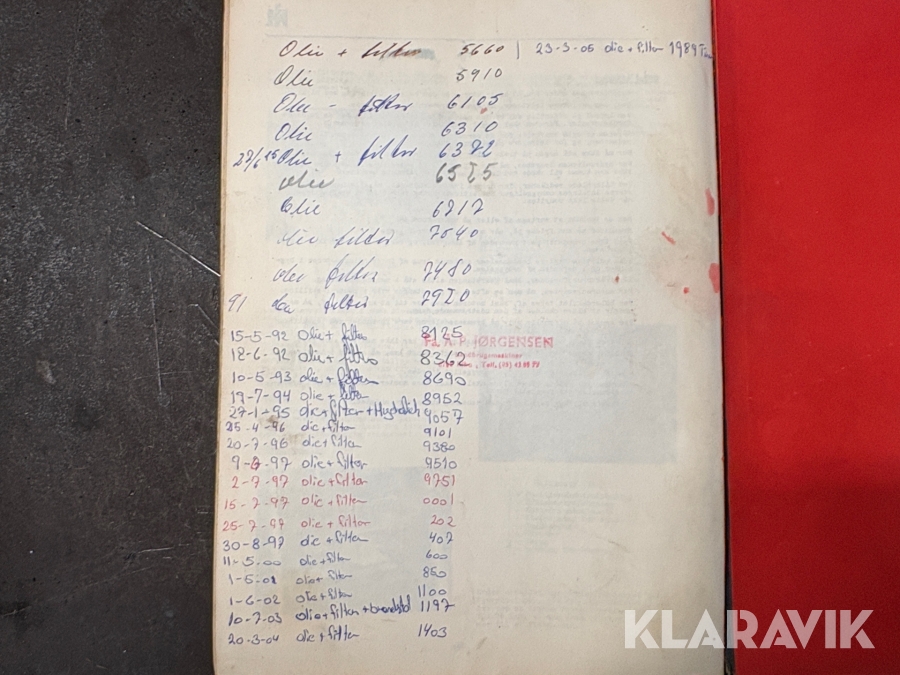 Olie + filter 5660 | 23-3-05 olie + filter 1989 Tim
Olie 5910
Olie - filter 6105
Olie 6310
Olie + filter 6372
olie 6525
Olie 6717
olie filter 7040
olie filter 7480
91 olie filter 7920
15-5-92 Olie + filter 8125
FA. A. P. JØRGENSEN
18-6-92 olie + filter 8362
Tlf.
10-5-93 olie + filter 8690
19-7-94 olie + filter 8952
27-1-95 olie + filter + Hydrolik 9057
25-4-96 olie + filter 9101
20-7-96 olie + filter 9380
9-2-97 olie + filter 9510
2-7-97 olie + filter 9751
15-7-97 olie + filter 0001
25-7-97 olie + filter 202
30-8-97 olie + filter 407
11-5-00 olie + filter 600
1-5-01 olie + filter 850
1-6-02 olie + filter 1100
10-7-03 olie + filter + brændstof 1197
20-3-04 olie + filter 1403
KLARAVIK